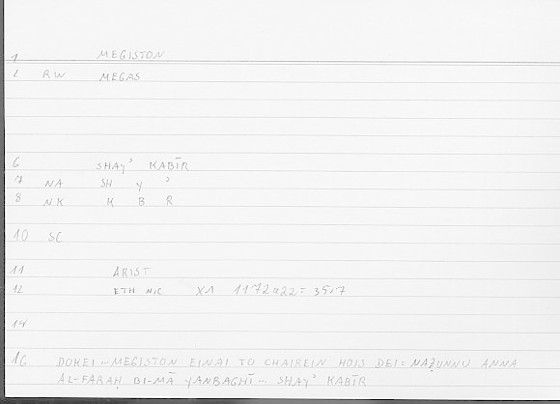 1 MEGISTON
2 RW MEGAS
6 SHAYʾ KABĪR
7 NA SH Y ʾ
8 NK K B R
10 SC
11 ARIST
12 ETH NIC X1 1172a22 = 35,7
14
16 DOKEI – MEGISTON EINAI TO CHAIREIN HOIS DEI : NAẒUNNU ANNA
AL-FARAḤ BI-MĀ YANBAGHĪ – SHAYʾ KABĪR